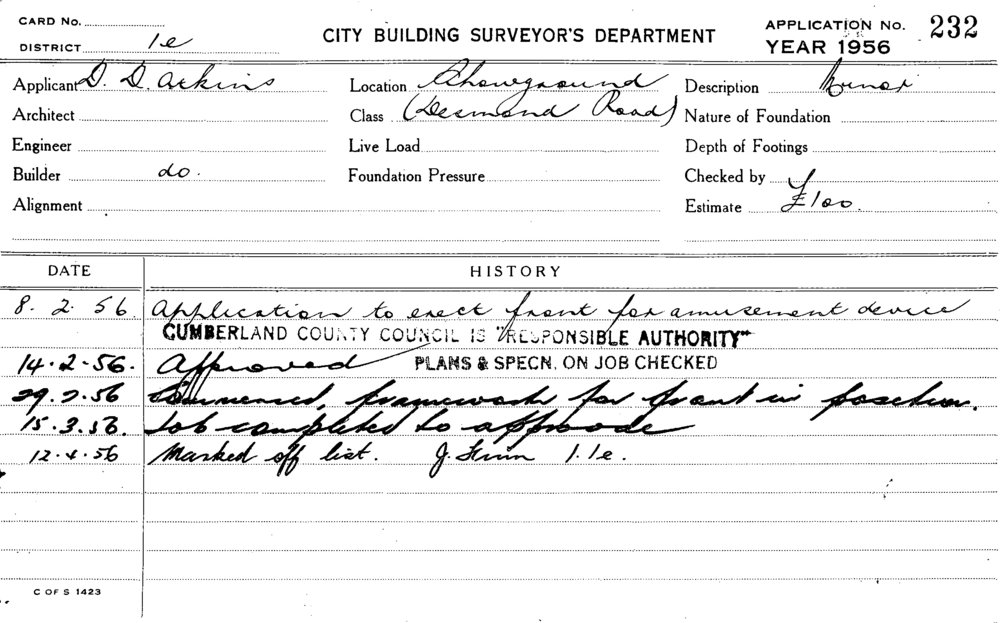 CARD No.
DISTRICT 1e
CITY BUILDING SURVEYOR'S DEPARTMENT
APPLICATION No. 232
YEAR 1956
Applicant D. D. Arkins Location Showground Description Minor
Architect Class (Desmond Road) Nature of Foundation
Engineer Live Load Depth of Footings
Builder do. Foundation Pressure Checked by
Alignment Estimate £100.
DATE HISTORY
8. 2. 56 Application to erect front for amusement device
CUMBERLAND COUNTY COUNCIL IS "RESPONSIBLE AUTHORITY"
14.2.56. Approved PLANS & SPECN. ON JOB CHECKED
29.2.56 Commenced, framework for front in position.
15.3.56. Job completed to
12.4.56 Marked off list. J. 1.1e.
C OF S 1423